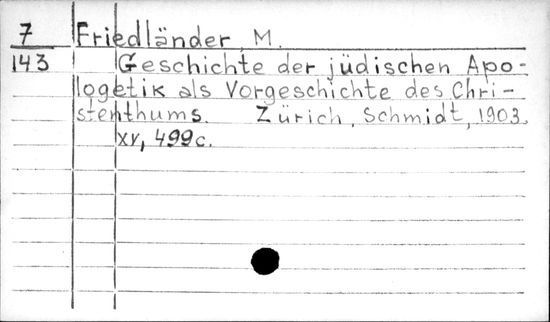 7 Friedländer, M.
143 Geschichte der jüdischen Apo-
logetik als Vorgeschichte des Chri-
stenthums. Zürich, Schmidt, 1903.
XV, 499c.